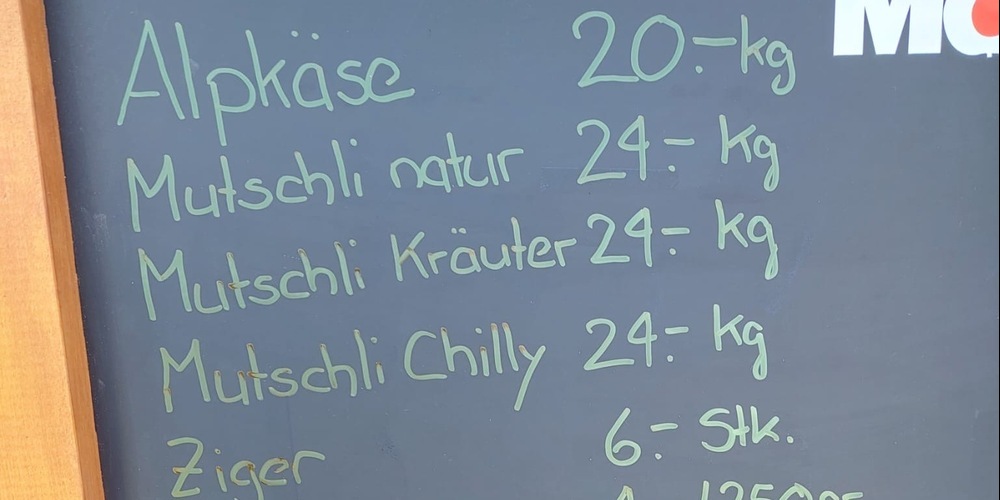 Alpkäse 20.- kg
Mutschli natur 24.- kg
Mutschli Kräuter 24.- kg
Mutschli Chilly 24.- kg
Ziger 6.- Stk.